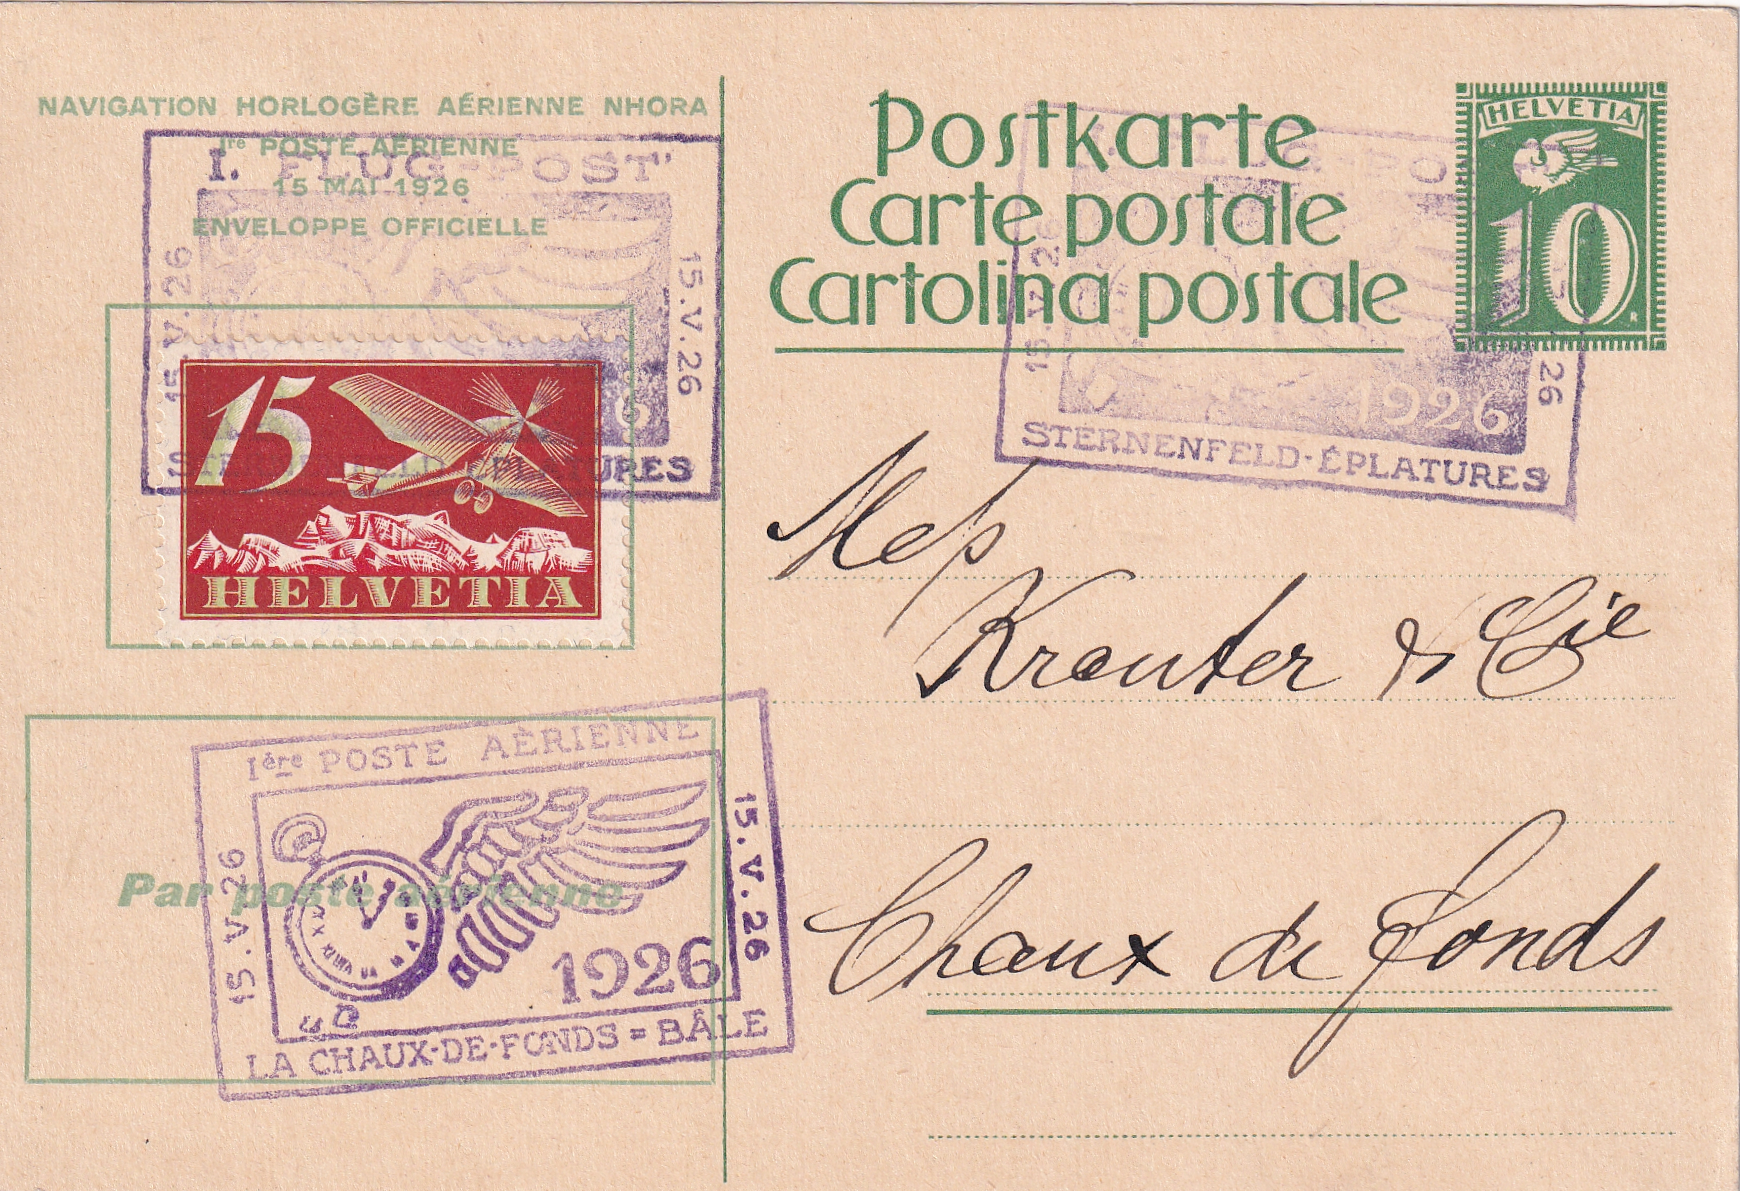 NAVIGATION HORLOGÈRE AÉRIENNE NHORA
Ire POSTE AÉRIENNE
15 MAI 1926
ENVELOPPE OFFICIELLE
I. FLUG-POST
15.V.26
15.V.26
STERNENFELD-ÉPLATURES
15
HELVETIA
Ière POSTE AÈRIENNE
15.V.26
15.V.26
Par poste aérienne
1926
LA CHAUX-DE-FONDS = BÂLE
Postkarte
Carte postale
Cartolina postale
HELVETIA
10
I. FLUG-PO
15.V.26
26
1926
STERNENFELD-ÉPLATURES
Krauter & Cie
Chaux de fonds